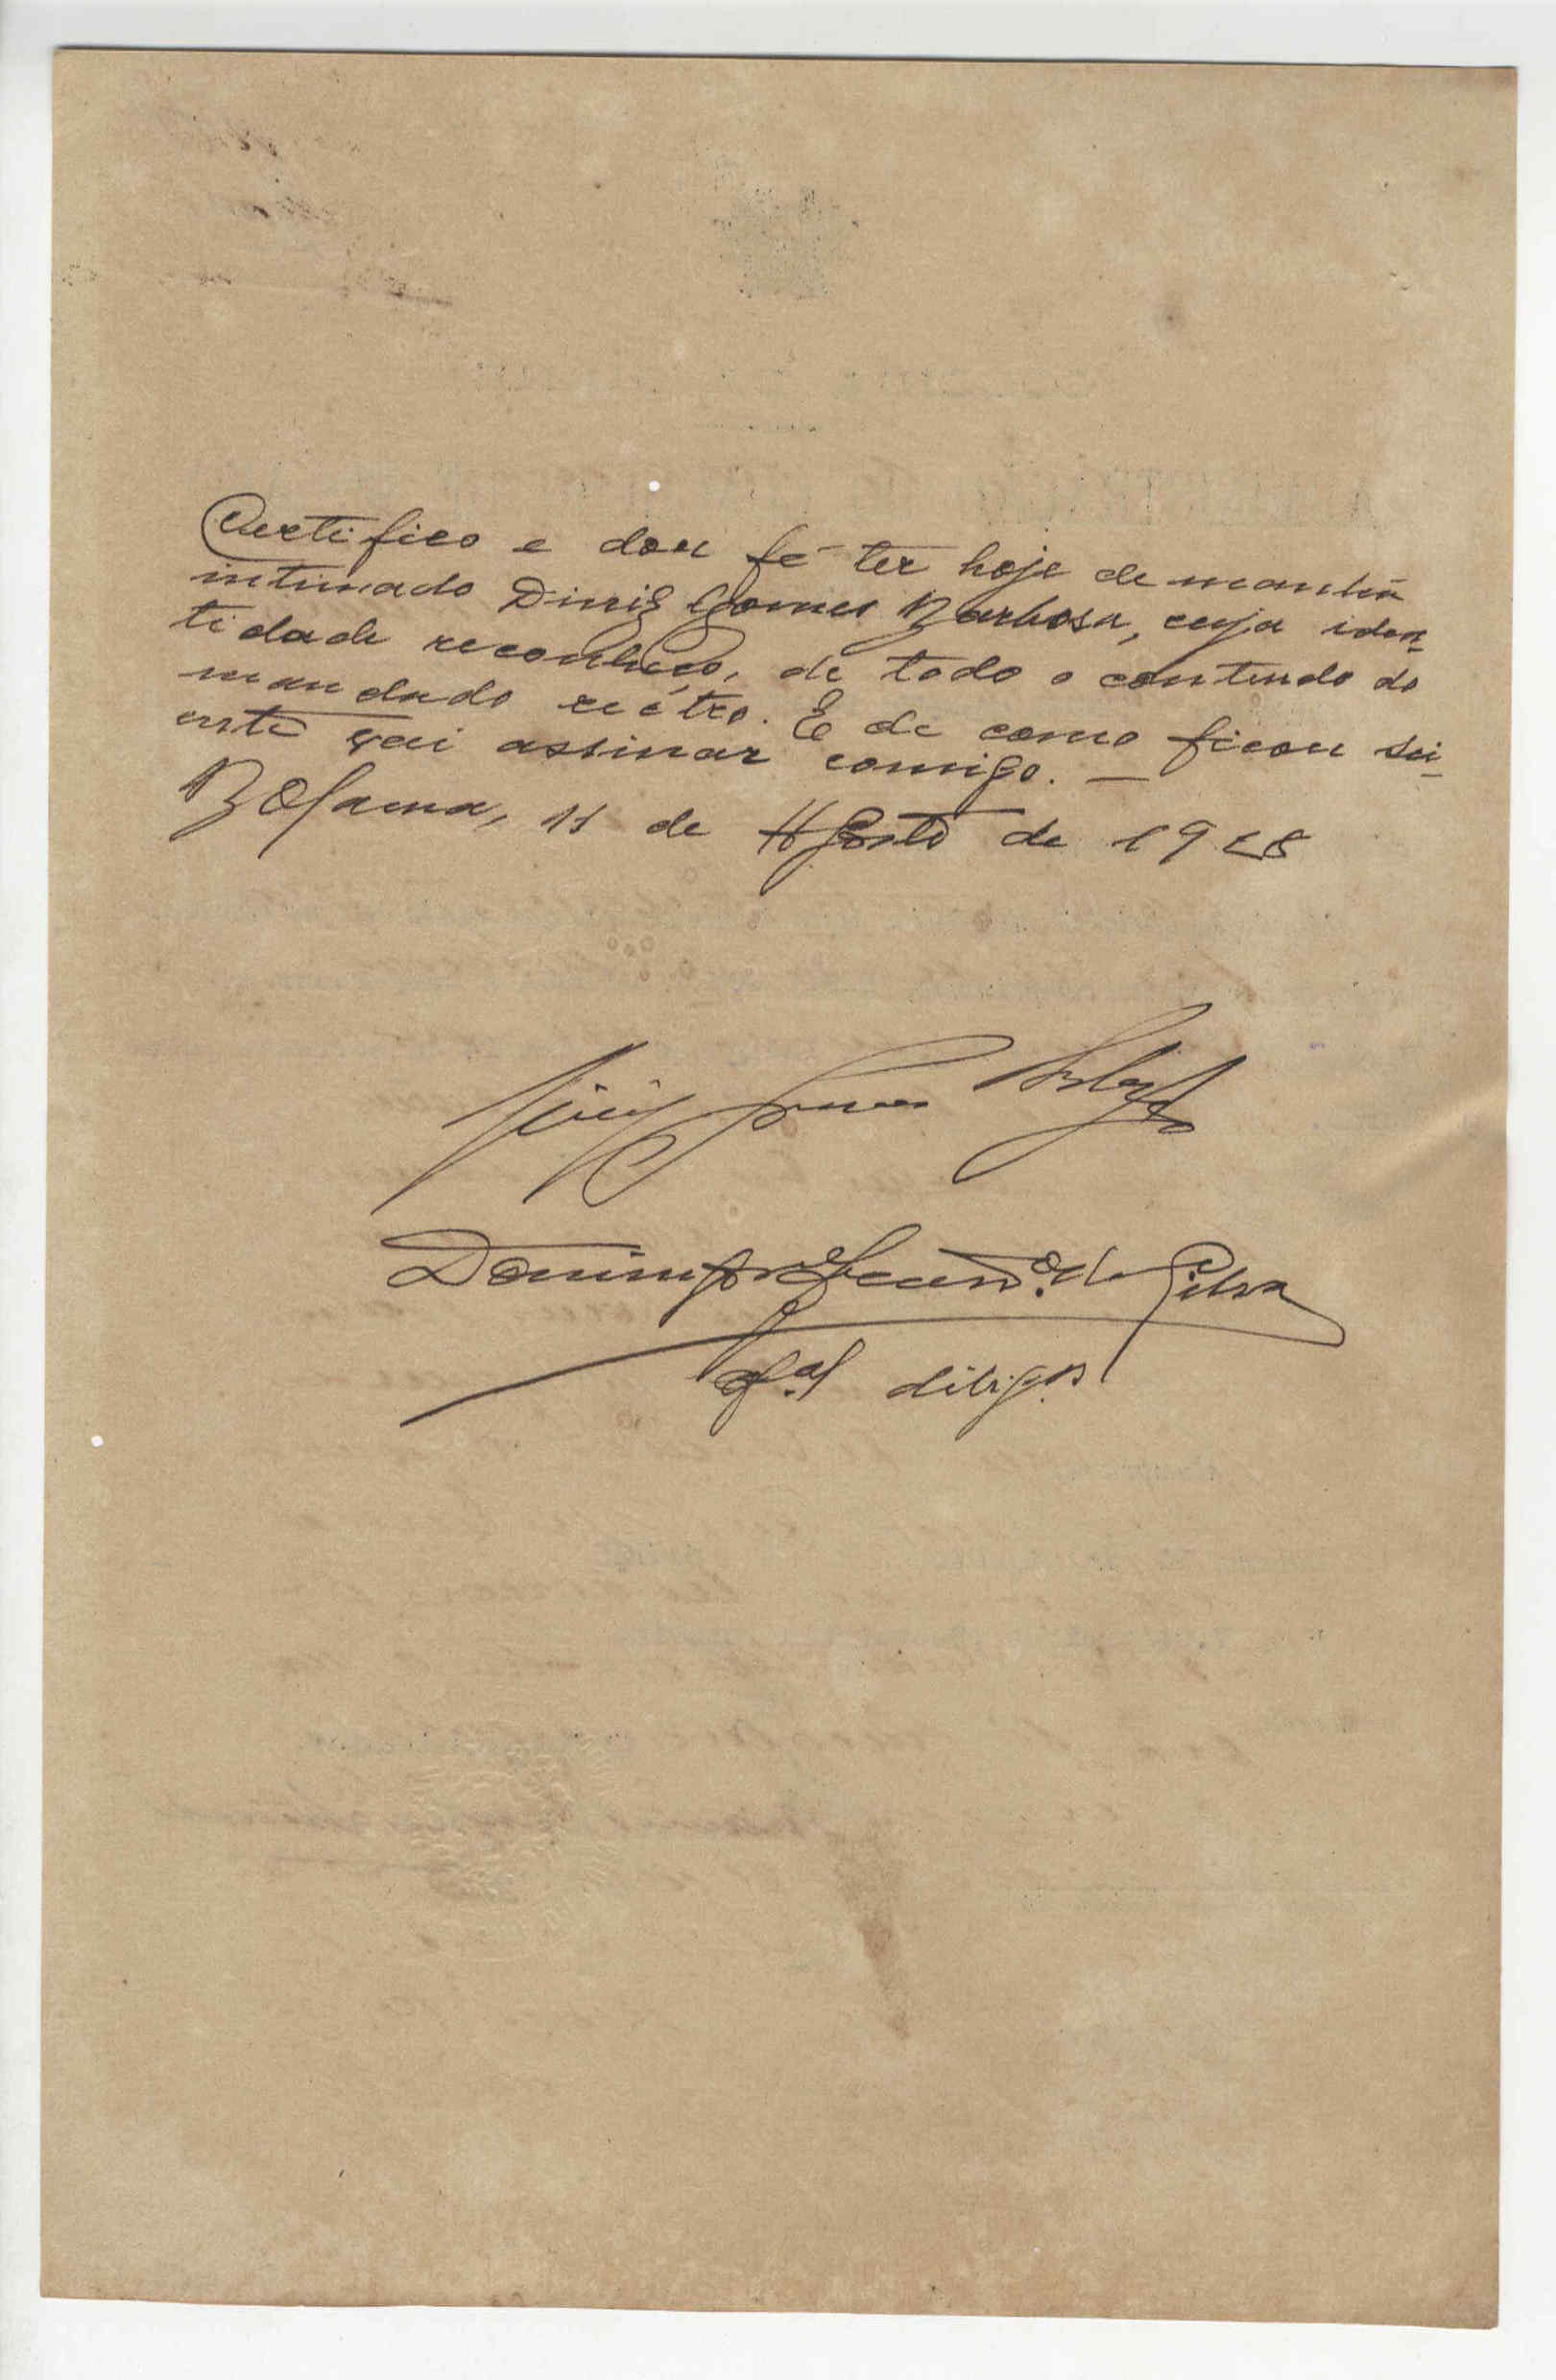 Certifico e dou fé ter hoje de manhã
intimado Diniz Gomes Barbosa, cuja iden-
tidade reconheço, de todo o conteudo do
mandado reétro. E de como ficou sci-
ente vai assinar comigo. —
Bolama, 11 de Agosto de 1928
Diniz Gomes Barbosa
Domingos da Silva
Ofal diligas